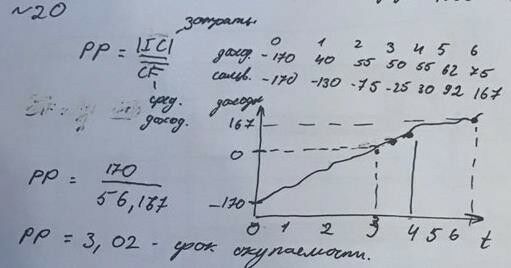 №20
затраты
PP = |IC| / CF
сред. доход.
0 1 2 3 4 5 6
доход. -170 40 55 50 55 62 75
-170 -130 -75 -25 30 92 167
доходы
167
0
-170
0 1 2 3 4 5 6 t
PP = 170 / 56,167
PP = 3,02 - срок окупаемости.